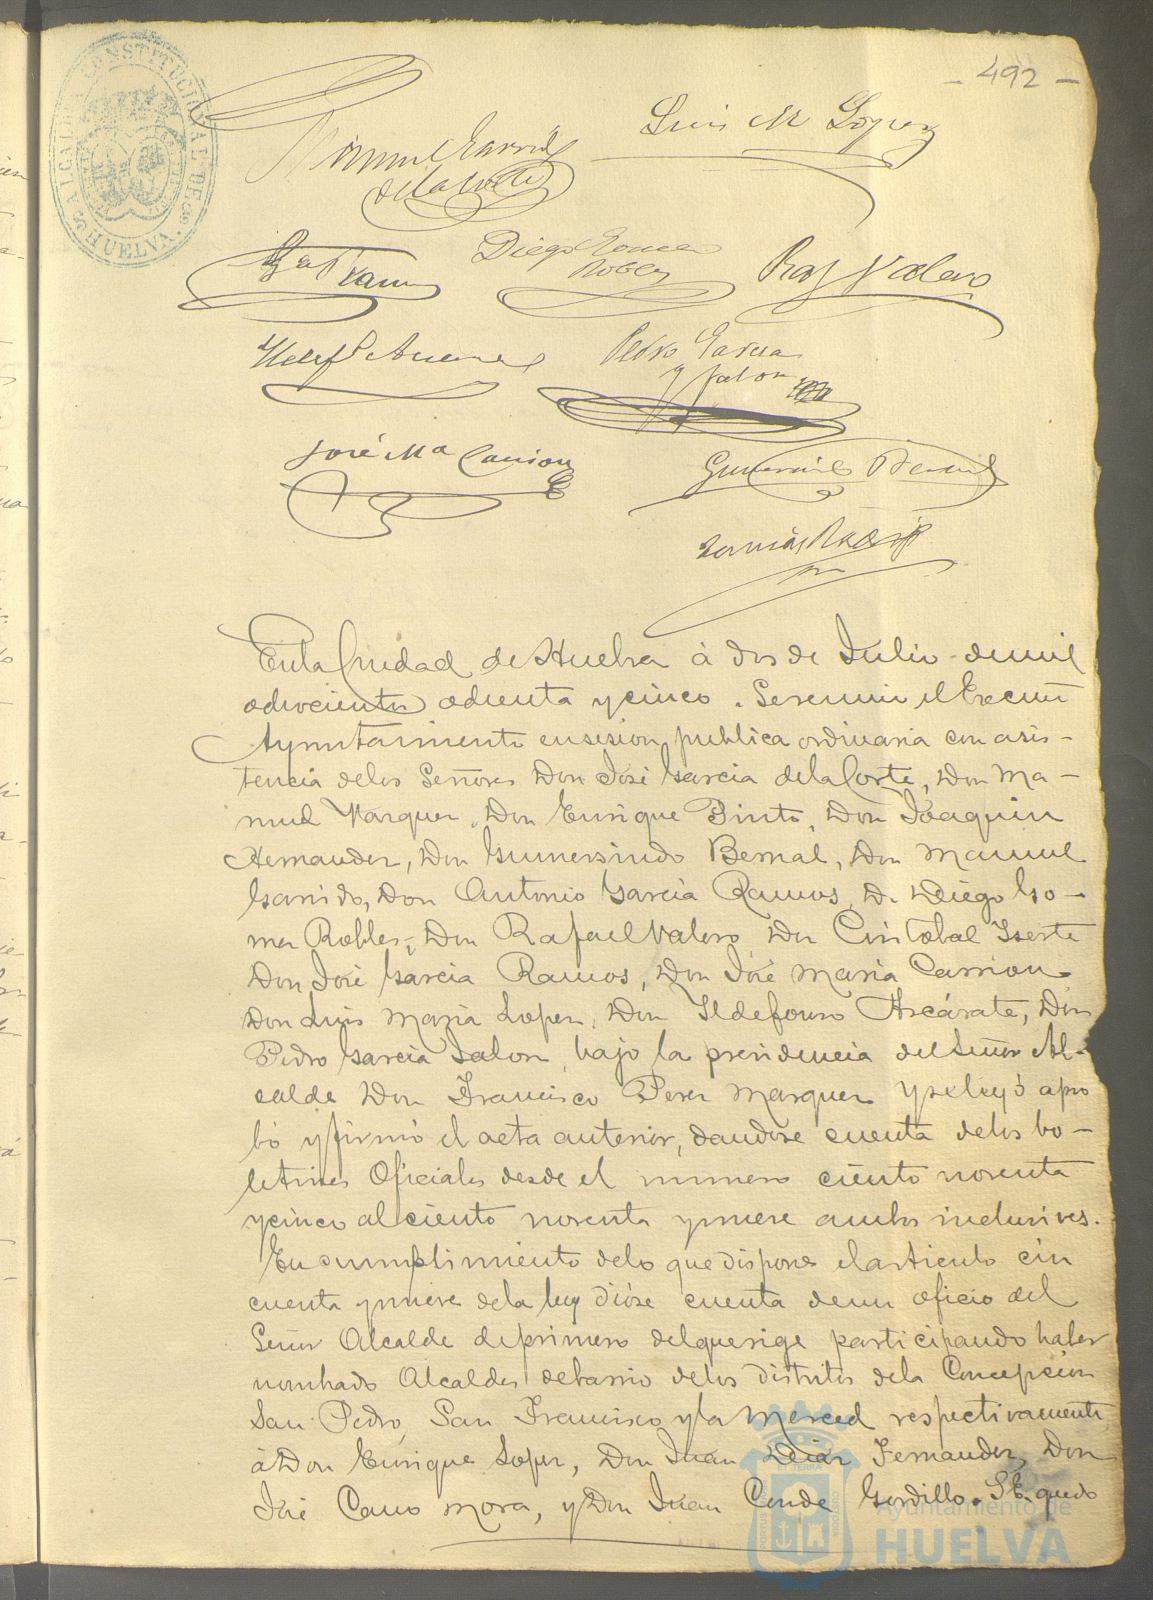 - 492 -
ALCALDIA CONSTITUCIONAL DE HUELVA.
Luis M Lopez
Manuel Garrido
de la Corte
Diego Gomez
Robles
Raf Valero
Pedro Garcia
y Jalon
José Mª Carrion
Gumersindo Bernal
En la Ciudad de Huelva à dos de Julio de mil
ochocientos ochenta y cinco. Se reunio el Excmo
Ayuntamiento en sesion publica ordinaria con asis-
tencia de los Señores Don José Garcia de la Corte, Don Ma-
nuel Vazquez, Don Enrique Pinto, Don Joaquin
Hernandez, Don Gumersindo Bernal, Don Manuel
Garrido, Don Antonio Garcia Ramos, D. Diego Go-
mez Robles, Don Rafael Valero Don Cristobal Iserte
Don José Garcia Ramos, Don José Maria Carrion
Don Luis Maria Lopez, Don Ildefonso Azcárate, Don
Pedro Garcia Jalon, bajo la presidencia del Señor Al-
calde Don Francisco Perez Marquez y se leyó apro
bó y firmó el acta anterior, dandose cuenta de los bo-
letines Oficiales desde el numero ciento noventa
y cinco al ciento noventa y nueve ambos inclusives.
En cumplimiento de lo que dispone el articulo cin
cuenta y nueve de la ley dióse cuenta de un oficio del
Señor Alcalde de primero del que rige participando haber
nombrado Alcaldes de barrio de los distritos de la Concepcion
San Pedro, San Francisco y la Merced respectivamente
à Don Enrique Lopez, Don Juan Diaz Fernandez, Don
José Cano Mora, y Don Juan Conde Gordillo. S.E. quedo
Ayuntamiento de
HUELVA